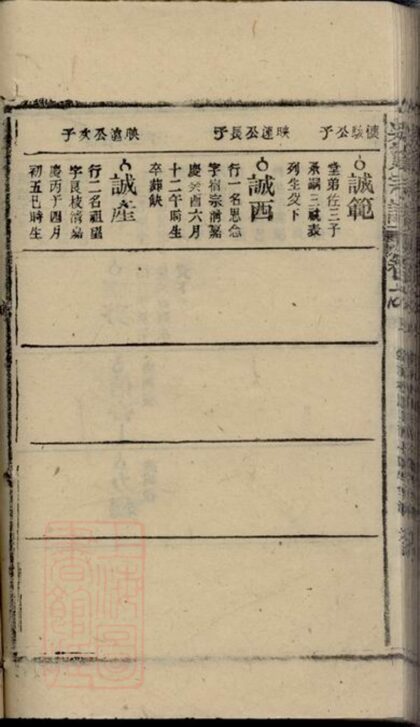 懷駿公子
誠範
堂弟位三子
承嗣三誠表
列生歿下
映蓮公長子
誠西
行一名思念
字宿宗清嘉
慶癸酉六月
十二午時生
卒葬缺
映蓮公次子
誠産
行二名祖望
字艮枝清嘉
慶丙子四月
初五巳時生